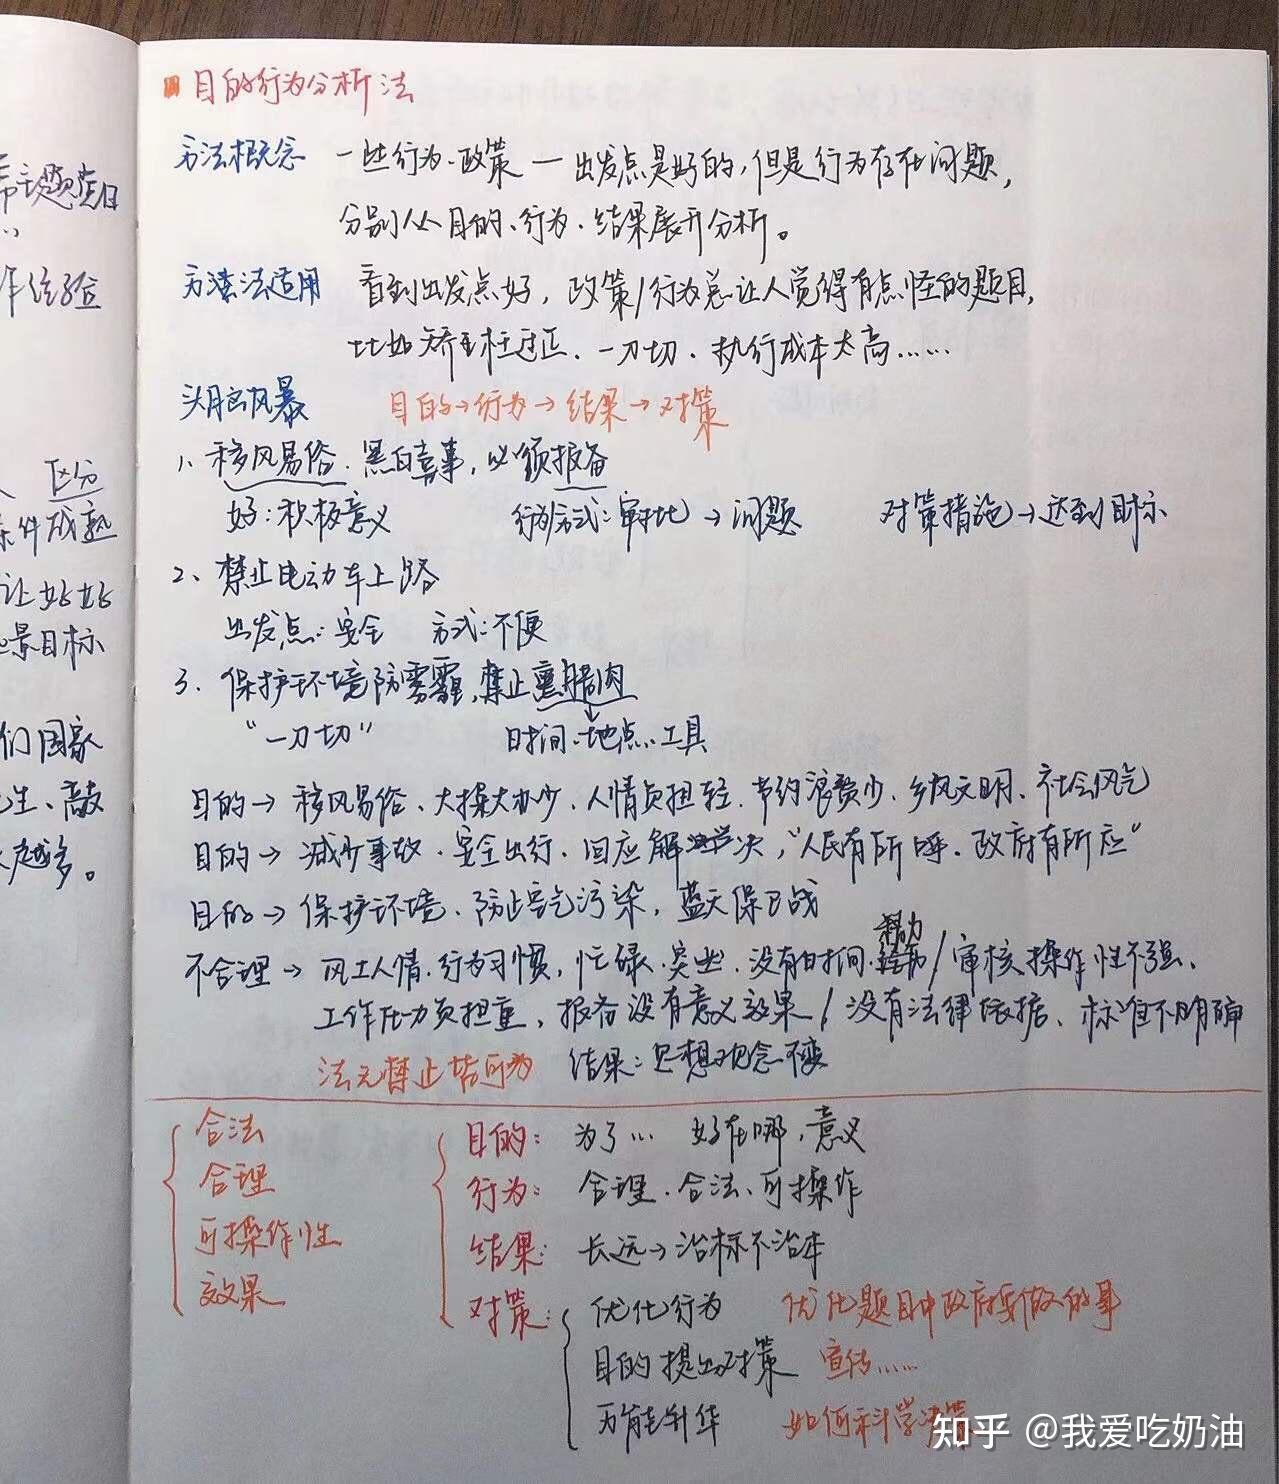 目的行为分析法
方法概念 一些行为、政策 — 出发点是好的，但是行为存在问题，
分别从目的、行为、结果展开分析。
方法适用 看到出发点好，政策/行为总让人觉得有点怪的题目，
比如矫枉过正、一刀切、执行成本太高……
头脑风暴 目的→行为→结果→对策
1、移风易俗、黑白喜事，必须报备
好：积极意义 行为方式：审批→问题 对策措施→达到目标
2、禁止电动车上路
出发点：安全 方式：不便
3、保护环境防雾霾，禁止熏腊肉
“一刀切” 时间、地点、工具
目的→移风易俗、大操大办少、人情负担轻、节约浪费少、乡风文明、社会风气
目的→减少事故、安全出行、回应解决，“人民有所呼、政府有所应”
目的→保护环境、防止空气污染，蓝天保卫战
精力
不合理→风土人情、行为习惯，忙碌、突出、没有时间、/审核操作性不强、
工作压力负担重，报备没有意义效果/没有法律依据、标准不明确
法无禁止皆可为 结果：思想观念不变
合法
合理
可操作性
效果
目的：为了… 好在哪，意义
行为：合理、合法、可操作
结果：长远→治标不治本
对策：优化行为 优化题目中政府要做的事
目的提出对策 宣传……
万能升华 如何科学决策
帝主题党日
作经验
区分
条件成熟
让好好
景目标
们国家
生、敲
越多。
知乎 @我爱吃奶油